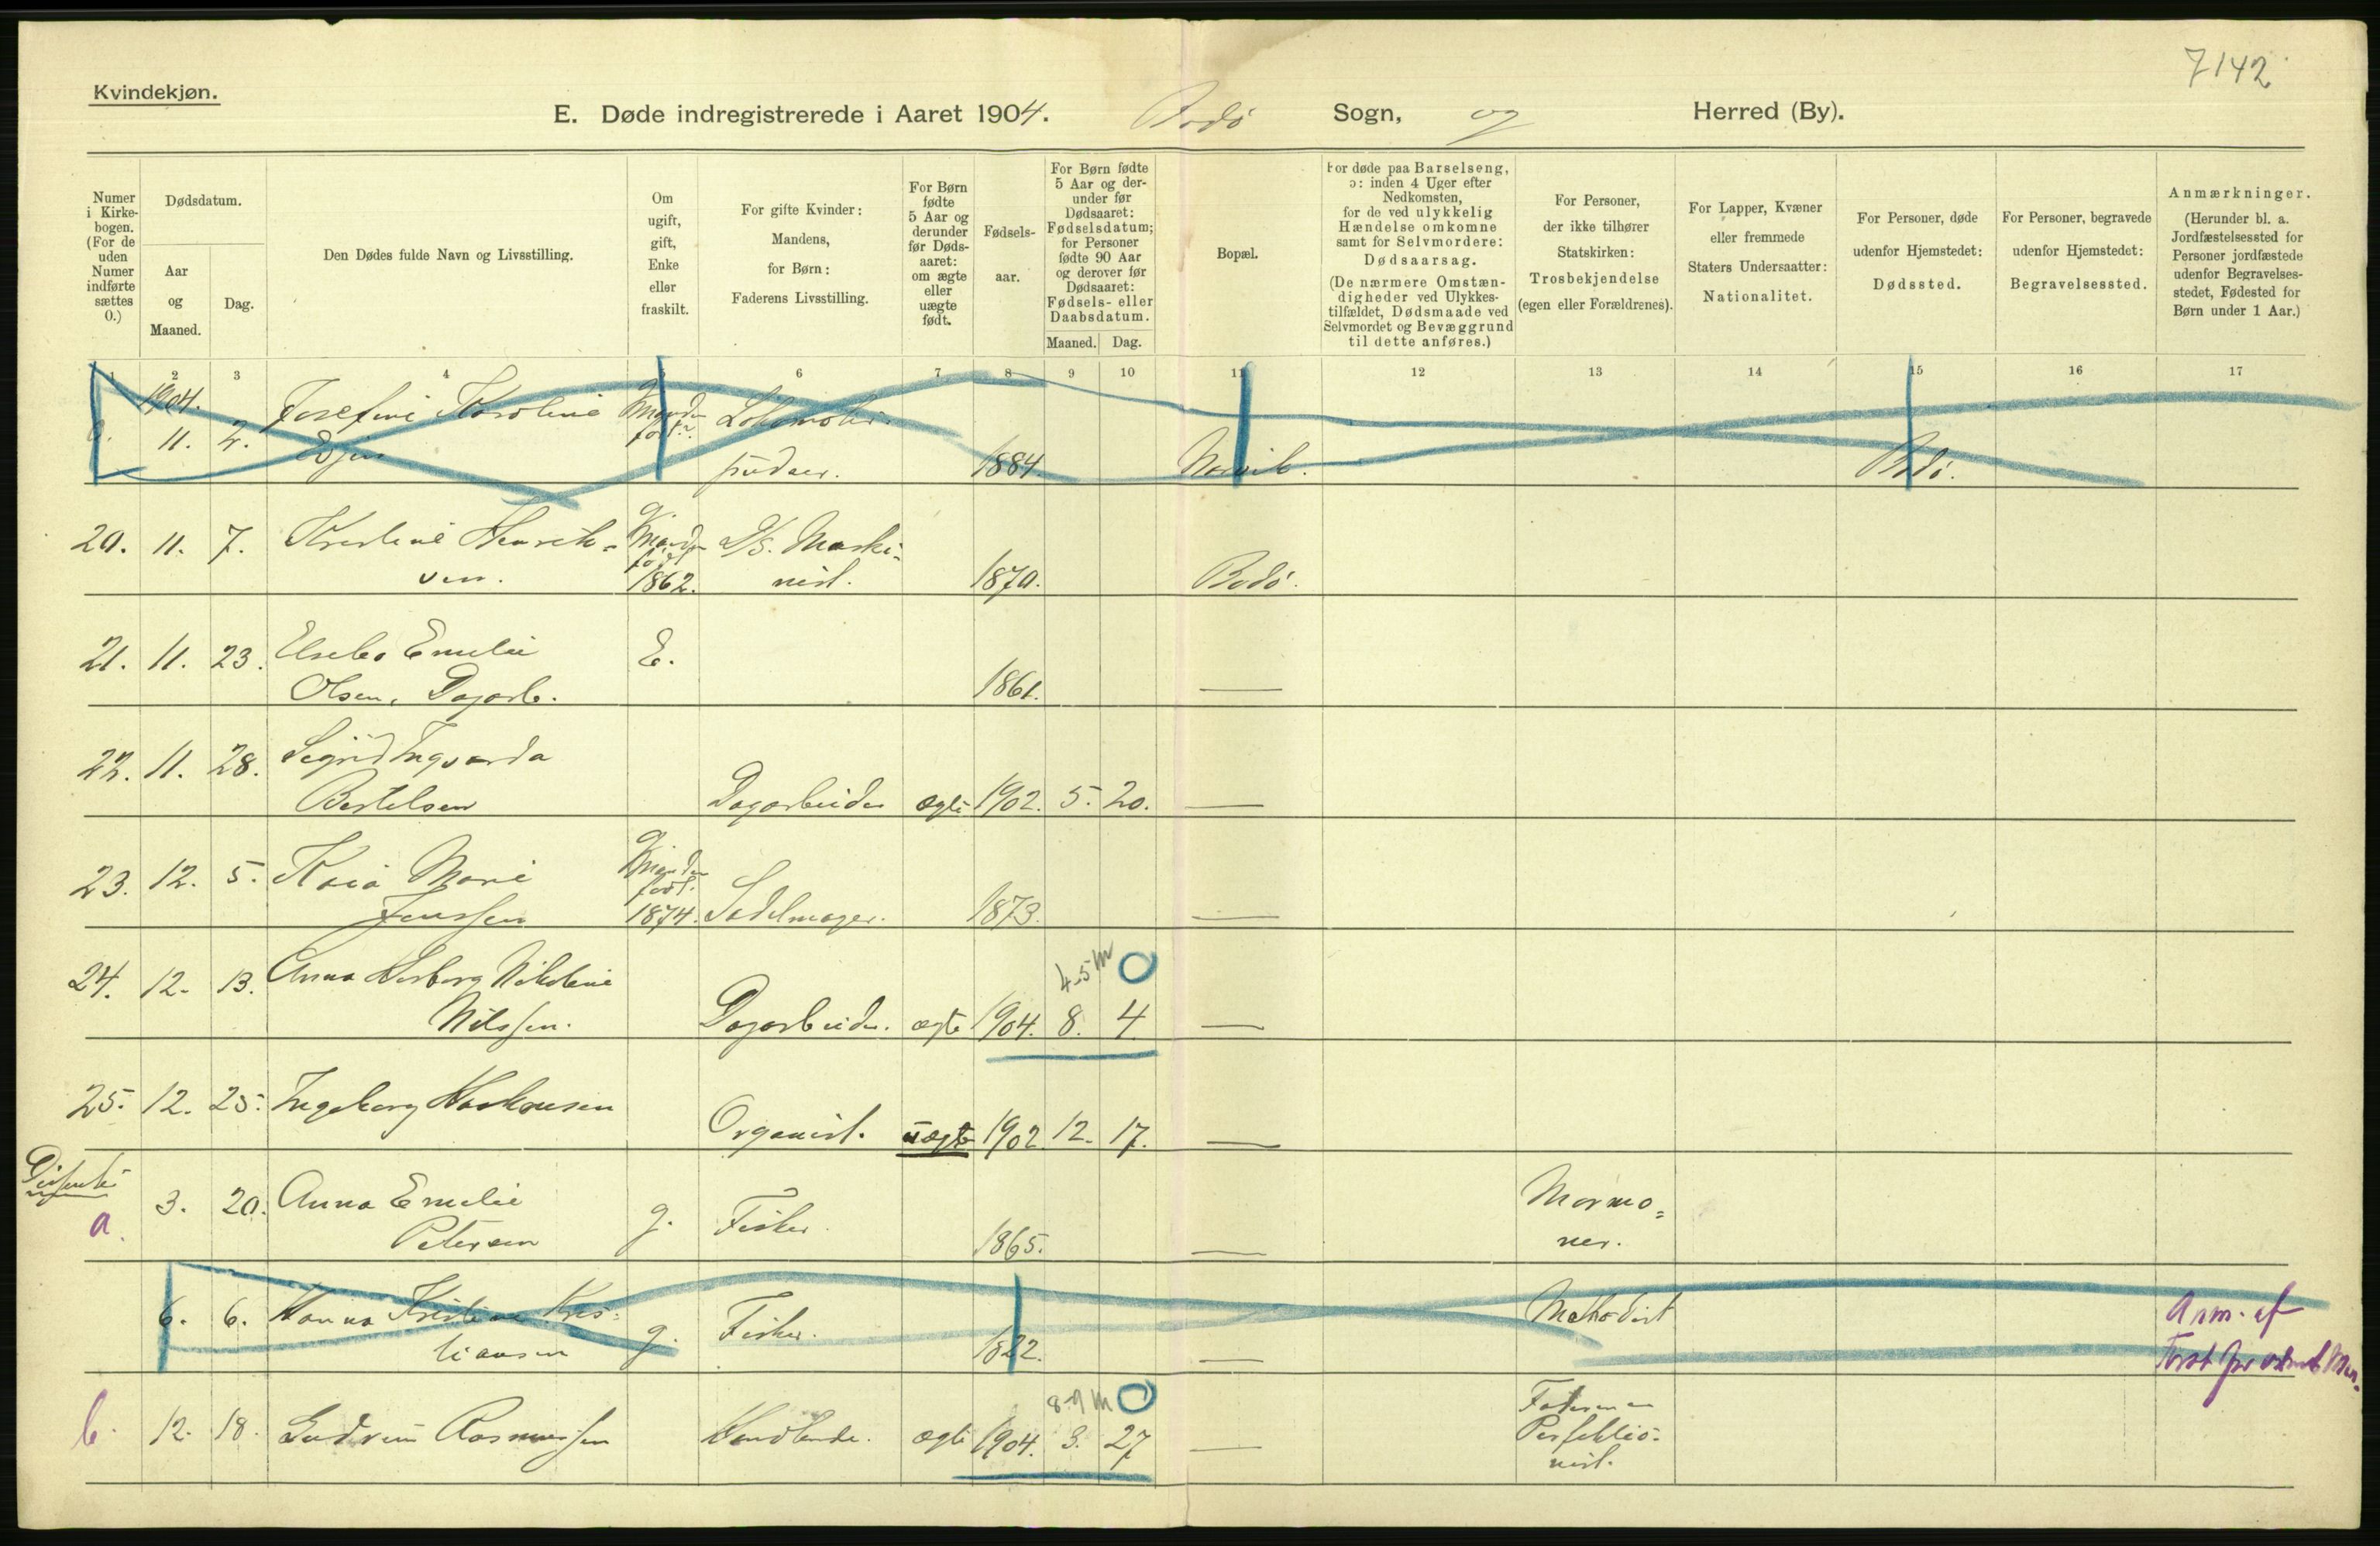 7142
Kvindekjøn.
E. Døde indregistrerede i Aaret 1904. Bodø Sogn, og Herred (By).
Numer i Kirkebogen. (For de uden Numer indførte sættes 0.)
Dødsdatum.
Aar og Maaned.
Dag.
Den Dødes fulde Navn og Livsstilling.
Om ugift, gift, Enke eller fraskilt.
For gifte Kvinder: Mandens, for Børn: Faderens Livsstilling.
For Børn fødte 5 Aar og derunder før Dødsaaret: om ægte eller uægte født.
Fødselsaar.
For Børn fødte 5 Aar og derunder før Dødsaaret: Fødselsdatum; for Personer fødte 90 Aar og derover før Dødsaaret: Fødsels- eller Daabsdatum.
Maaned. Dag.
Bopæl.
For døde paa Barselseng, ɔ: inden 4 Uger efter Nedkomsten, for de ved ulykkelig Hændelse omkomne samt for Selvmordere: Dødsaarsag.
(De nærmere Omstændigheder ved Ulykkestilfældet, Dødsmaade ved Selvmordet og Bevæggrund til dette anføres.)
For Personer, der ikke tilhører Statskirken: Trosbekjendelse (egen eller Forældrenes).
For Lapper, Kvæner eller fremmede Staters Undersaatter: Nationalitet.
For Personer, døde udenfor Hjemstedet: Dødssted.
For Personer, begravede udenfor Hjemstedet: Begravelsessted.
Anmærkninger.
(Herunder bl. a. Jordfæstelsessted for Personer jordfæstede udenfor Begravelsesstedet, Fødested for Børn under 1 Aar.)
1 2 3 4 5 6 7 8 9 10 11 12 13 14 15 16 17
1904.
0. 11. 2. Josefine Karoline Manden født
1884. Narvik. Bodø.
20. 11. 7. Kristine Henrik-
sen. g. Manden født 1862. D/S. Maski-
nist. 1870. Bodø.
21. 11. 23. Emelie
Olsen, Dagarb. E. 1861. —
22. 11. 28. Sigrid Ingvarda
Bertelsen Dagarbeider ægte 1902. 5. 20. —
23. 12. 5. Kaia Marie
Jenssen g. Manden født. 1874. Sadelmager. 1873. —
24. 12. 13. Anna Nikoline
Nilssen. Dagarbeider. ægte 1904. 8. 4. —
4-5 m 0
25. 12. 25. Ingeborg Haakonsen
Organist. uægte 1902. 12. 17. —
Dissenter
a. 3. 20. Anna Emelie
Petersen g. Fisker 1865. — Mormo=
ner.
6. 6. Hanna Kristine Kris=
tiansen g. Fisker. 1822. — Methodist
Anm. af
b. 12. 18. Gudrun Rasmussen Handlende. ægte 1904. 3. 27 —
8-9 m 0
Faderen er
Perfektio-
nist.